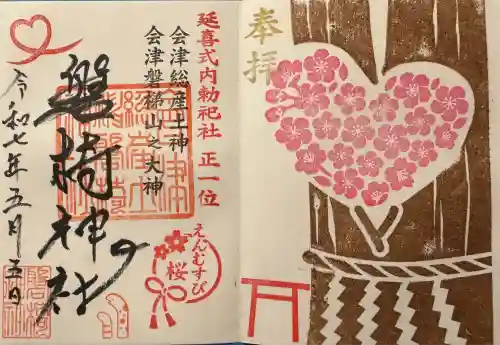 奉拝
延喜式内勅祀社 正一位
会津総産土神
会津磐梯山之大神
磐椅神社
令和七年五月五日
えんむすび
桜